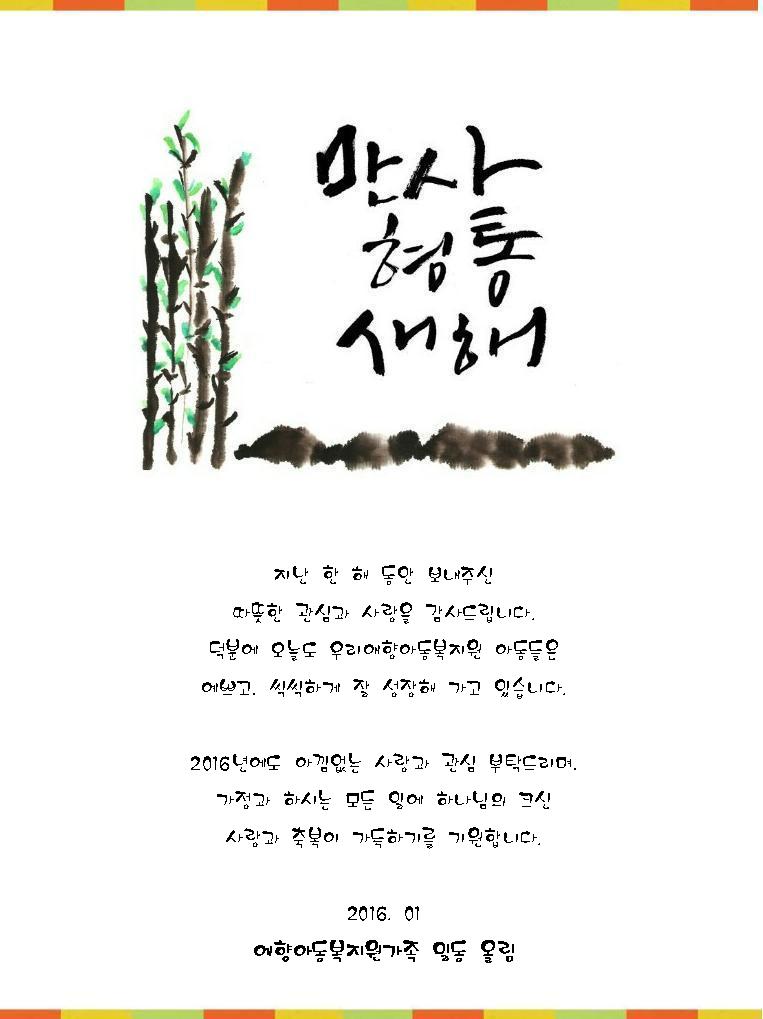 만사
형통
새해
지난 한 해 동안 보내주신
따뜻한 관심과 사랑을 감사드립니다.
덕분에 오늘도 우리애향아동복지원 아동들은
예쁘고, 씩씩하게 잘 성장해 가고 있습니다.
2016년에도 아낌없는 사랑과 관심 부탁드리며,
가정과 하시는 모든 일에 하나님의 크신
사랑과 축복이 가득하기를 기원합니다.
2016. 01
애향아동복지원가족 일동 올림